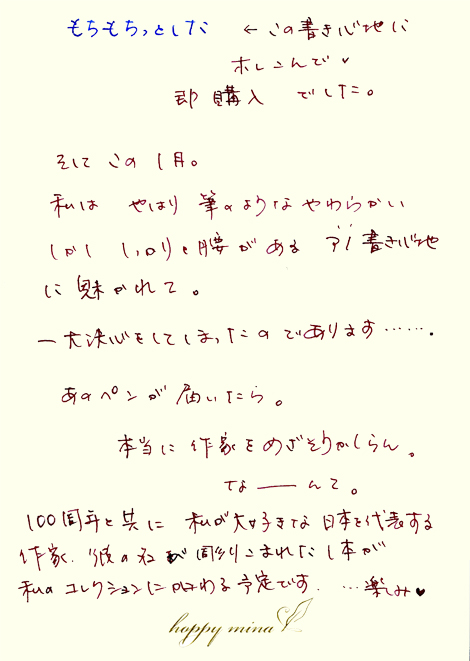 もちもちっとした ← この書き心地に
ホレこんで♥
即購入 でした。
そして この1月。
私は やはり 筆のような やわらかい
しかし しっかりと腰がある アノ書き心地
に 魅かれて。
一大決心をしてしまったのであります……．
あのペンが届いたら。
本当に 作家をめざそうかしらん。
なーーんて。
100周年と共に 私が大好きな 日本を代表する
作家．彼の名が彫りこまれた1本が
私のコレクションに加わる予定です．…楽しみ♥
happy mina